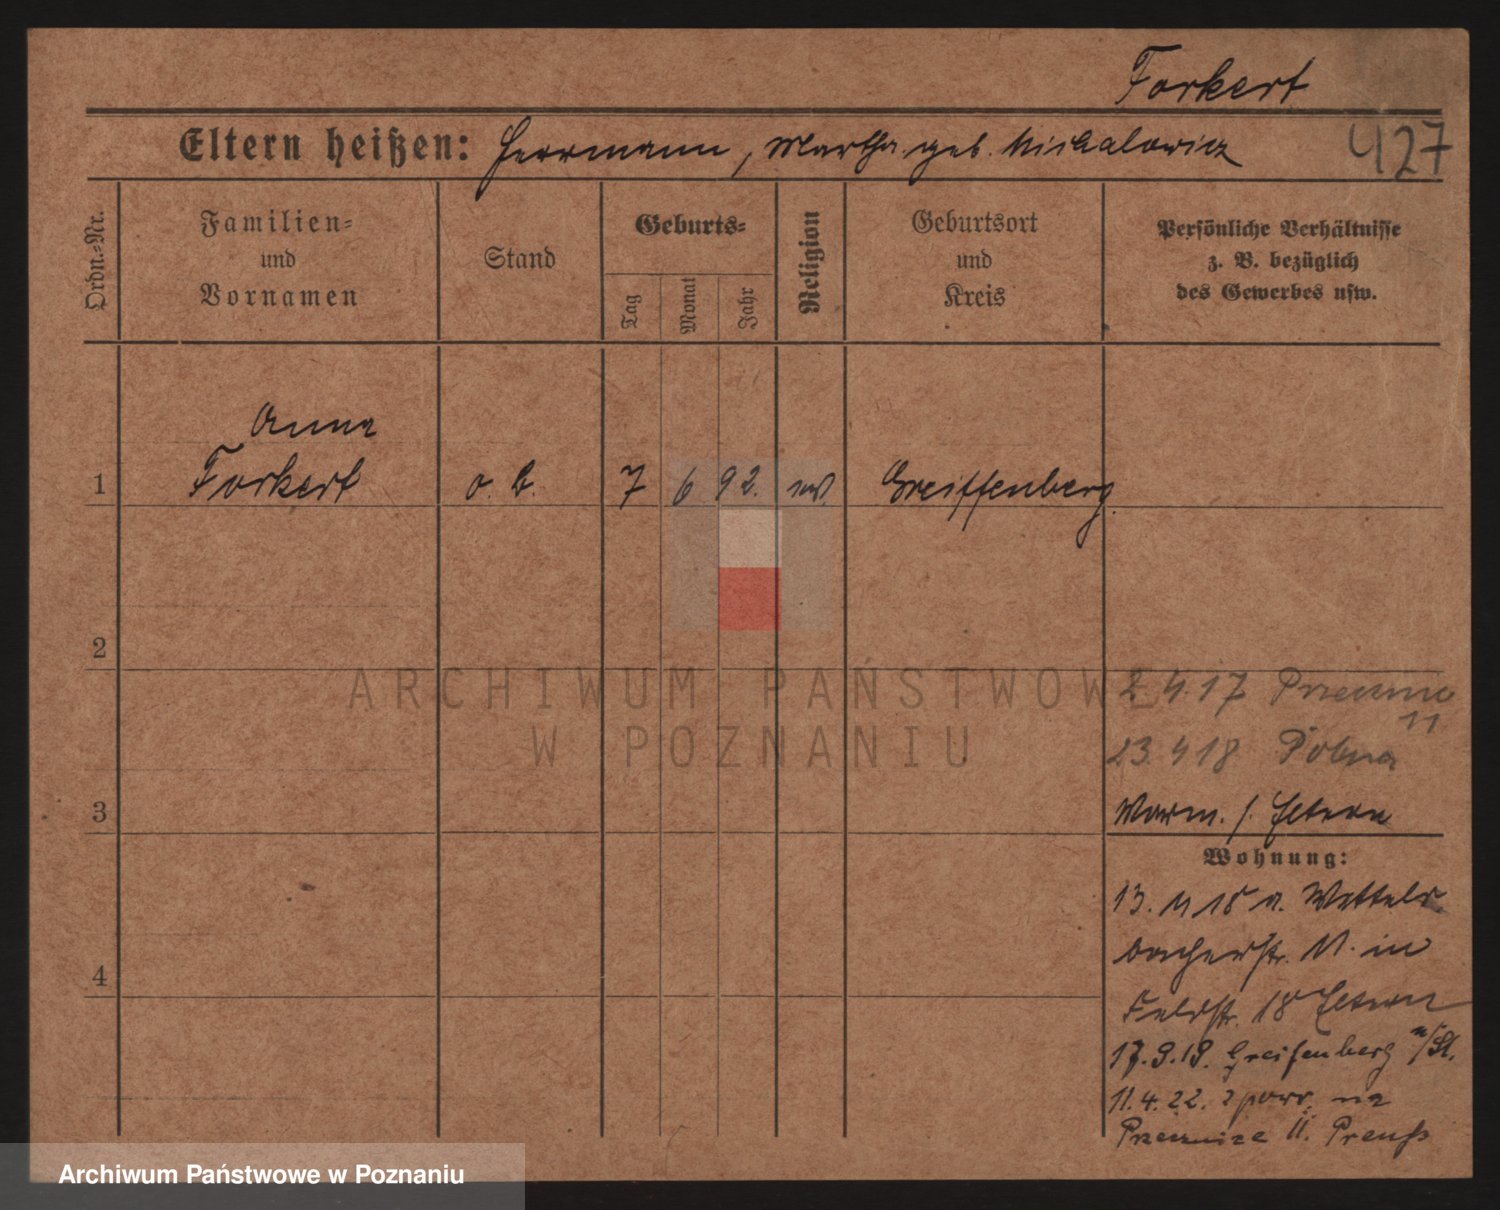 Forkert
427
Eltern heißen: Herrmann, Martha geb. Michalowicz
Ordn.-Nr.
Familien-
und
Vornamen
Stand
Geburts-
Tag
Monat
Jahr
Religion
Geburtsort
und
Kreis
Persönliche Verhältnisse
z. B. bezüglich
des Gewerbes usw.
Anna
1 Forkert o. B. 7 6 92. Greiffenberg.
2
ARCHIWUM PAŃSTWOWE
W POZNANIU
2 4.17
11
23.4 18 Polna
3
Eltern
Wohnung:
13. 11 18 a. Wattels-
bacherstr. 11. in
4
Feldstr. 18 Eltern
17.9.19. Greifenberg
11.4.22. z powr. na
Przecznice 11. Preuß
Archiwum Państwowe w Poznaniu